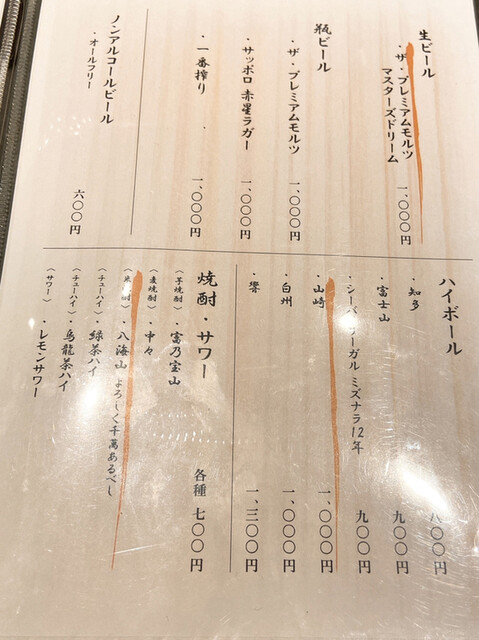 生ビール
・ザ・プレミアムモルツ
マスターズドリーム 一、〇〇〇円
瓶ビール
・ザ・プレミアムモルツ 一、〇〇〇円
・サッポロ 赤星ラガー 一、〇〇〇円
・一番搾り 一、〇〇〇円
ノンアルコールビール
・オールフリー 六〇〇円
ハイボール
・知多 八〇〇円
・富士山 九〇〇円
・シーバスリーガル ミズナラ12年 九〇〇円
・山崎 一、〇〇〇円
・白州 一、〇〇〇円
・響 一、三〇〇円
焼酎・サワー 各種 七〇〇円
〈芋焼酎〉・富乃宝山
〈麦焼酎〉・中々
〈米焼酎〉・八海山 よろしく千萬あるべし
〈チューハイ〉・緑茶ハイ
〈チューハイ〉・烏龍茶ハイ
〈サワー〉・レモンサワー